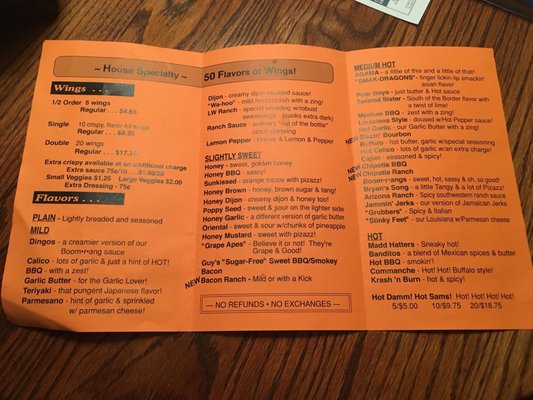 ~ House Specialty ~
Wings . . .
1/2 Order 5 wings
Regular . . . $4.65
Single 10 crispy, flavorful wings
Regular . . . $8.95
Double 20 wings
Regular . . . $17.75
Extra crispy available at an additional charge
Extra sauce 75¢/10 . . $1.50/20
Small Veggies $1.25 Large Veggies $2.00
Extra Dressing - 75¢
Flavors . . .
PLAIN - Lightly breaded and seasoned.
MILD
Dingos - a creamier version of our
Boom-r-ang sauce
Calico - lots of garlic & just a hint of HOT!
BBQ - with a zest!
Garlic Butter - for the Garlic Lover!
Teriyaki - that pungent Japanese flavor!
Parmesano - hint of garlic & sprinkled
w/ parmesan cheese!
50 Flavors of Wings!
Dijon - creamy dijon mustard sauce!
"Wa-hoo" - mild horseradish with a zing!
LW Ranch - special breading w/robust
seasonings - (cooks extra dark)
Ranch Sauce - ordinary "out of the bottle"
ranch dressing
Lemon Pepper - Honey & Lemon & Pepper
SLIGHTLY SWEET
Honey - sweet, golden honey
Honey BBQ - sassy!
Sunkissed - orange sauce with pizazz!
Honey Brown - honey, brown sugar & tang!
Honey Dijon - creamy dijon & honey too!
Poppy Seed - sweet & pour on the lighter side
Honey Garlic - a different version of garlic butter
Oriental - sweet & sour w/chunks of pineapple
Honey Mustard - sweet with pizazz!
"Grape Apes" - Believe it or not! They're
Grape & Good!
Guy's "Sugar-Free" Sweet BBQ/Smokey
Bacon
NEW Bacon Ranch - Mild or with a Kick
— NO REFUNDS • NO EXCHANGES —
MEDIUM HOT
AGAMA - a little of this and a little of that!
"SMAK-DRAGONS" - finger lickin-lip smackin'
asian flavor
Poor Boys - just butter & Hot sauce
Twisted Sister - South of the Border flavor with
a twist of lime!
Medium BBQ - zest with a zing!
Louisiana Style - doused w/Hot Pepper sauce!
Hot Garlic - our Garlic Butter with a zing!
NEW Blazin' Bourbon
Buffalo - hot butter, garlic w/special seasoning
Hot Calico - lots of garlic w/an extra charge!
Cajun - seasoned & spicy!
NEW Chipotle BBQ
NEW Chipotle Ranch
Boom-r-angs - sweet, hot, sassy & oh, so good!
Bryan's Song - a little Tangy & a lot of Pizazz!
Arizona Ranch - Spicy southwestern ranch sauce
Jammin' Jerks - our version of Jamaican Jerks
"Grubbers" - Spicy & Italian
"Stinky Feet" - our Louisiana w/Parmesan cheese
HOT
Madd Hatters - Sneaky hot!
Banditos - a blend of Mexican spices & butter
Hot BBQ - smokin'!
Commanche - Hot! Hot! Buffalo style!
Krash 'n Burn - hot & spicy!
Hot Damm! Hot Sams! Hot! Hot! Hot! Hot!
5/$5.00 10/$9.75 20/$18.75